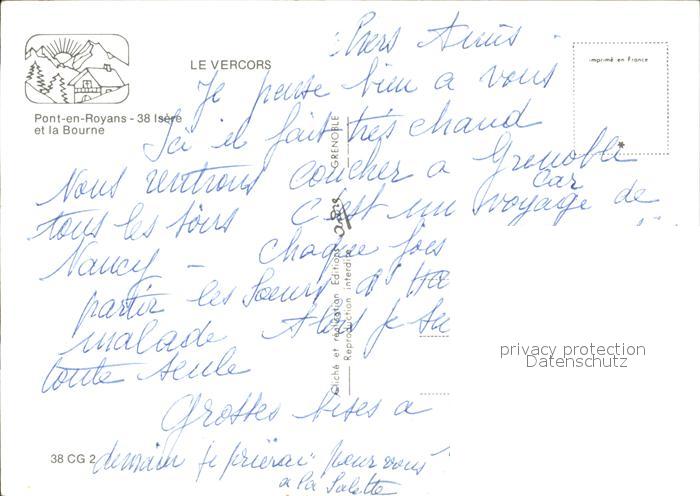 LE VERCORS
Pont-en-Royans - 38 Isère
et la Bourne
imprimé en France
Chers Amis -
Je pense bien a vous
Ici il fait très chaud
Nous rentrons coucher a Grenoble
tous les soirs C'est un voyage car de
Nancy - chaque fois
partir les Soeurs
malade Alors je
toute seule
Grosses bises a
demain je prierai pour vous
a La Salette
38 CG 2
Cliché et réalisation Editions andré GRENOBLE
Reproduction interdite
privacy protection
Datenschutz